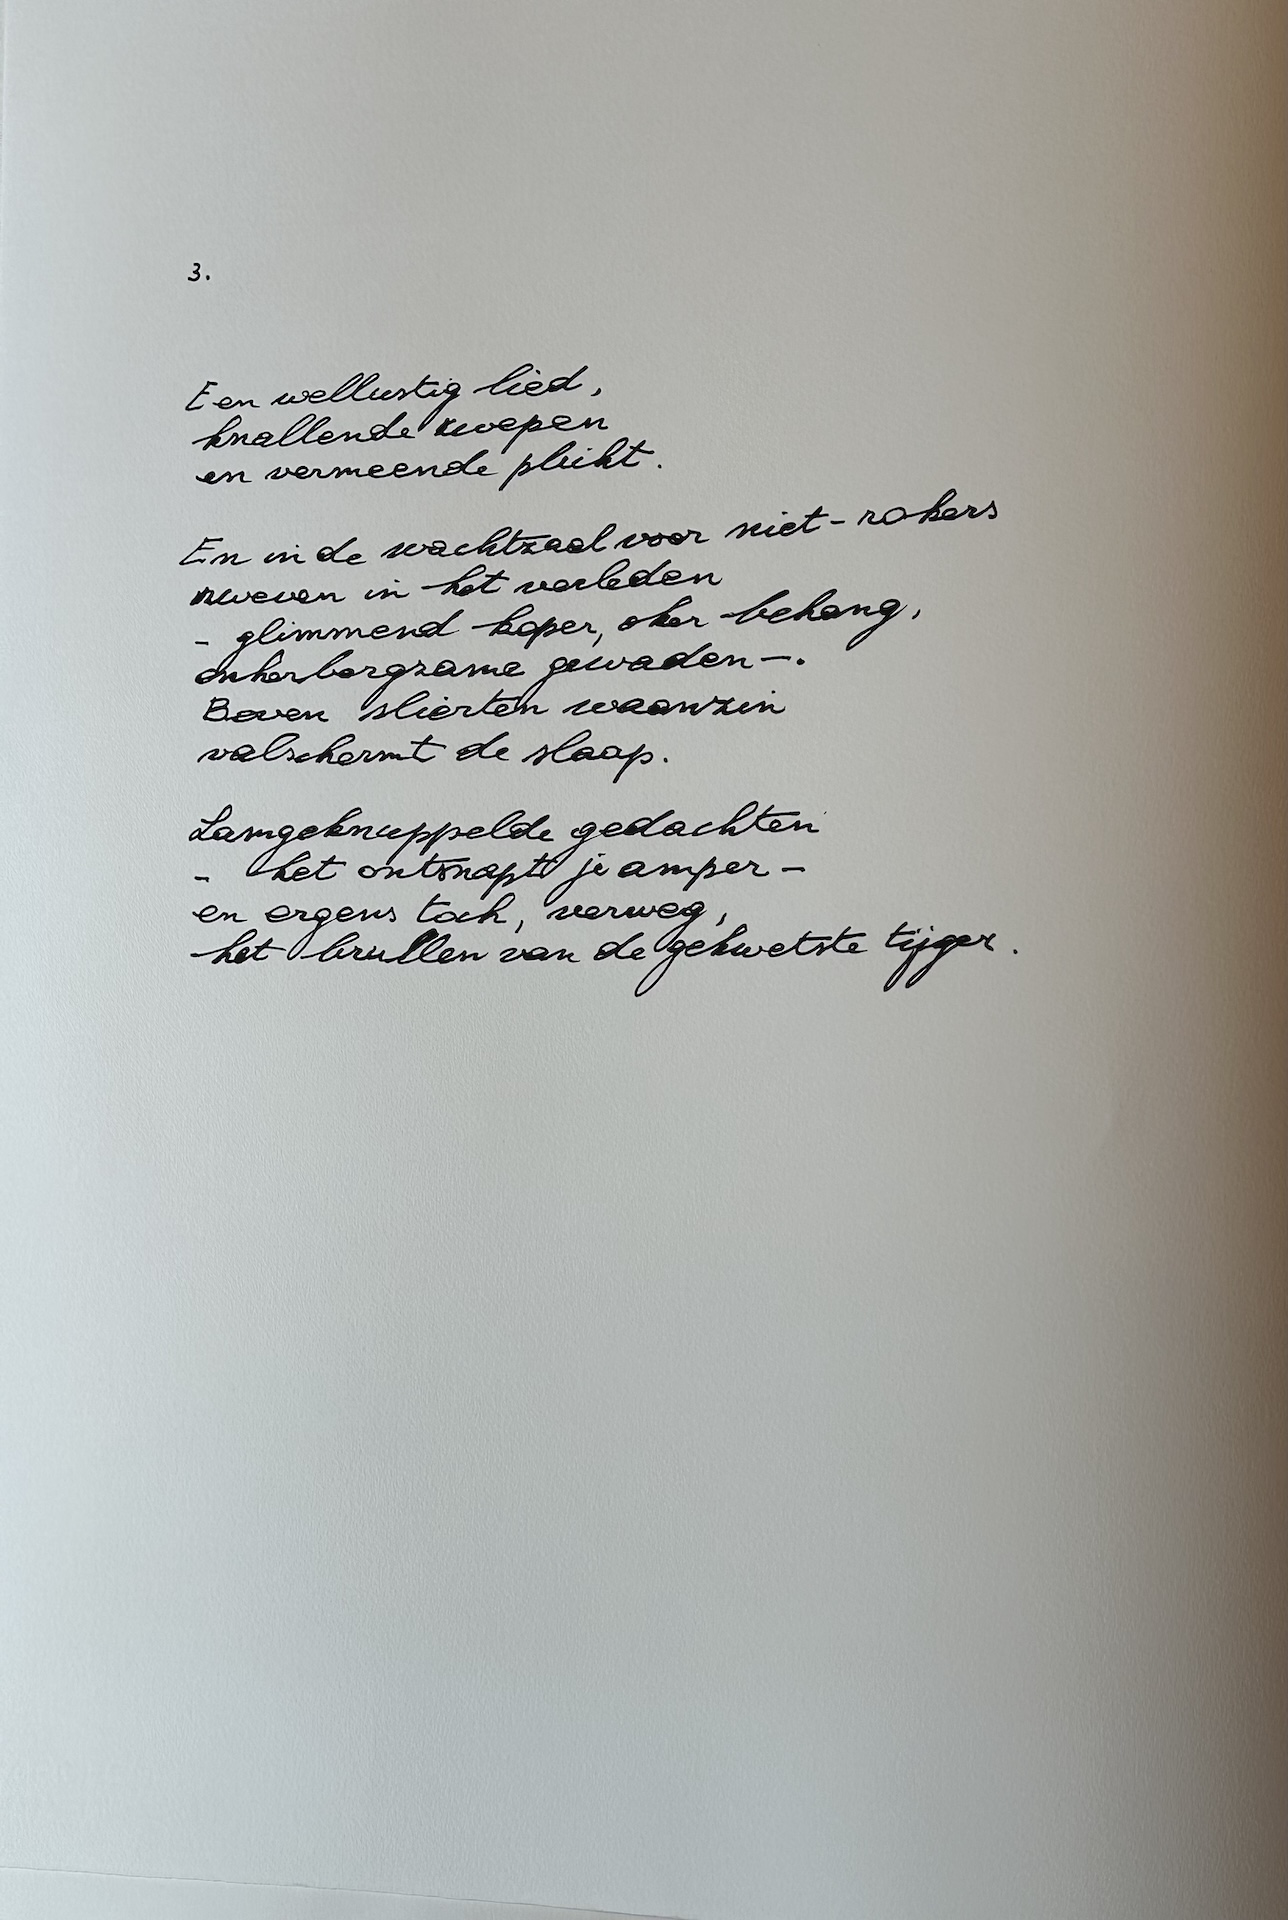 3.
Een wellustig lied,
knallende zwepen
en vermeende plicht.
En in de wachtzaal voor niet-rokers
zweven in het verleden
- glimmend koper, oker behang,
onherbergzame gewaden -.
Boven slierten waanzin
valschermt de slaap.
Lamgeknuppelde gedachten
- het ontsnapt je amper -
en ergens toch, verweg,
het brullen van de gekwetste tijger.